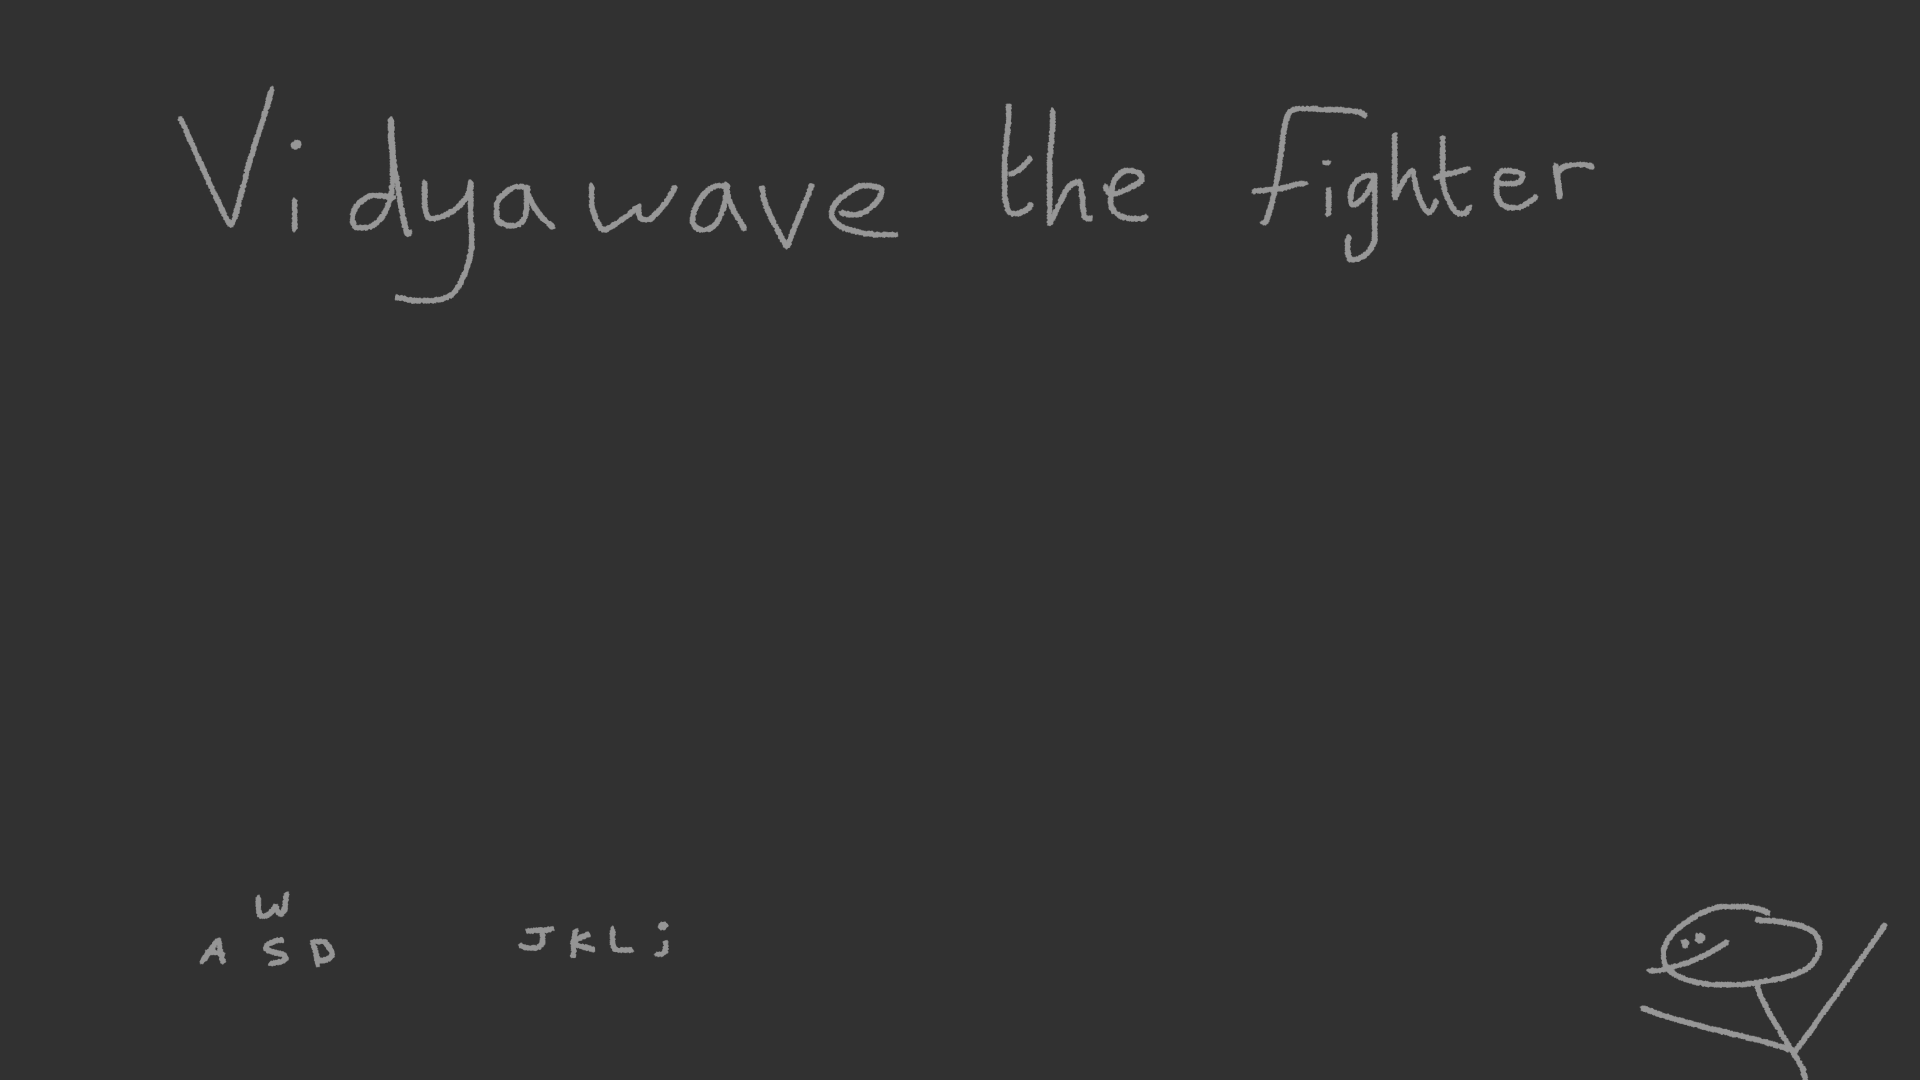 Vidyawave the Fighter
W
A S D
J K L ;